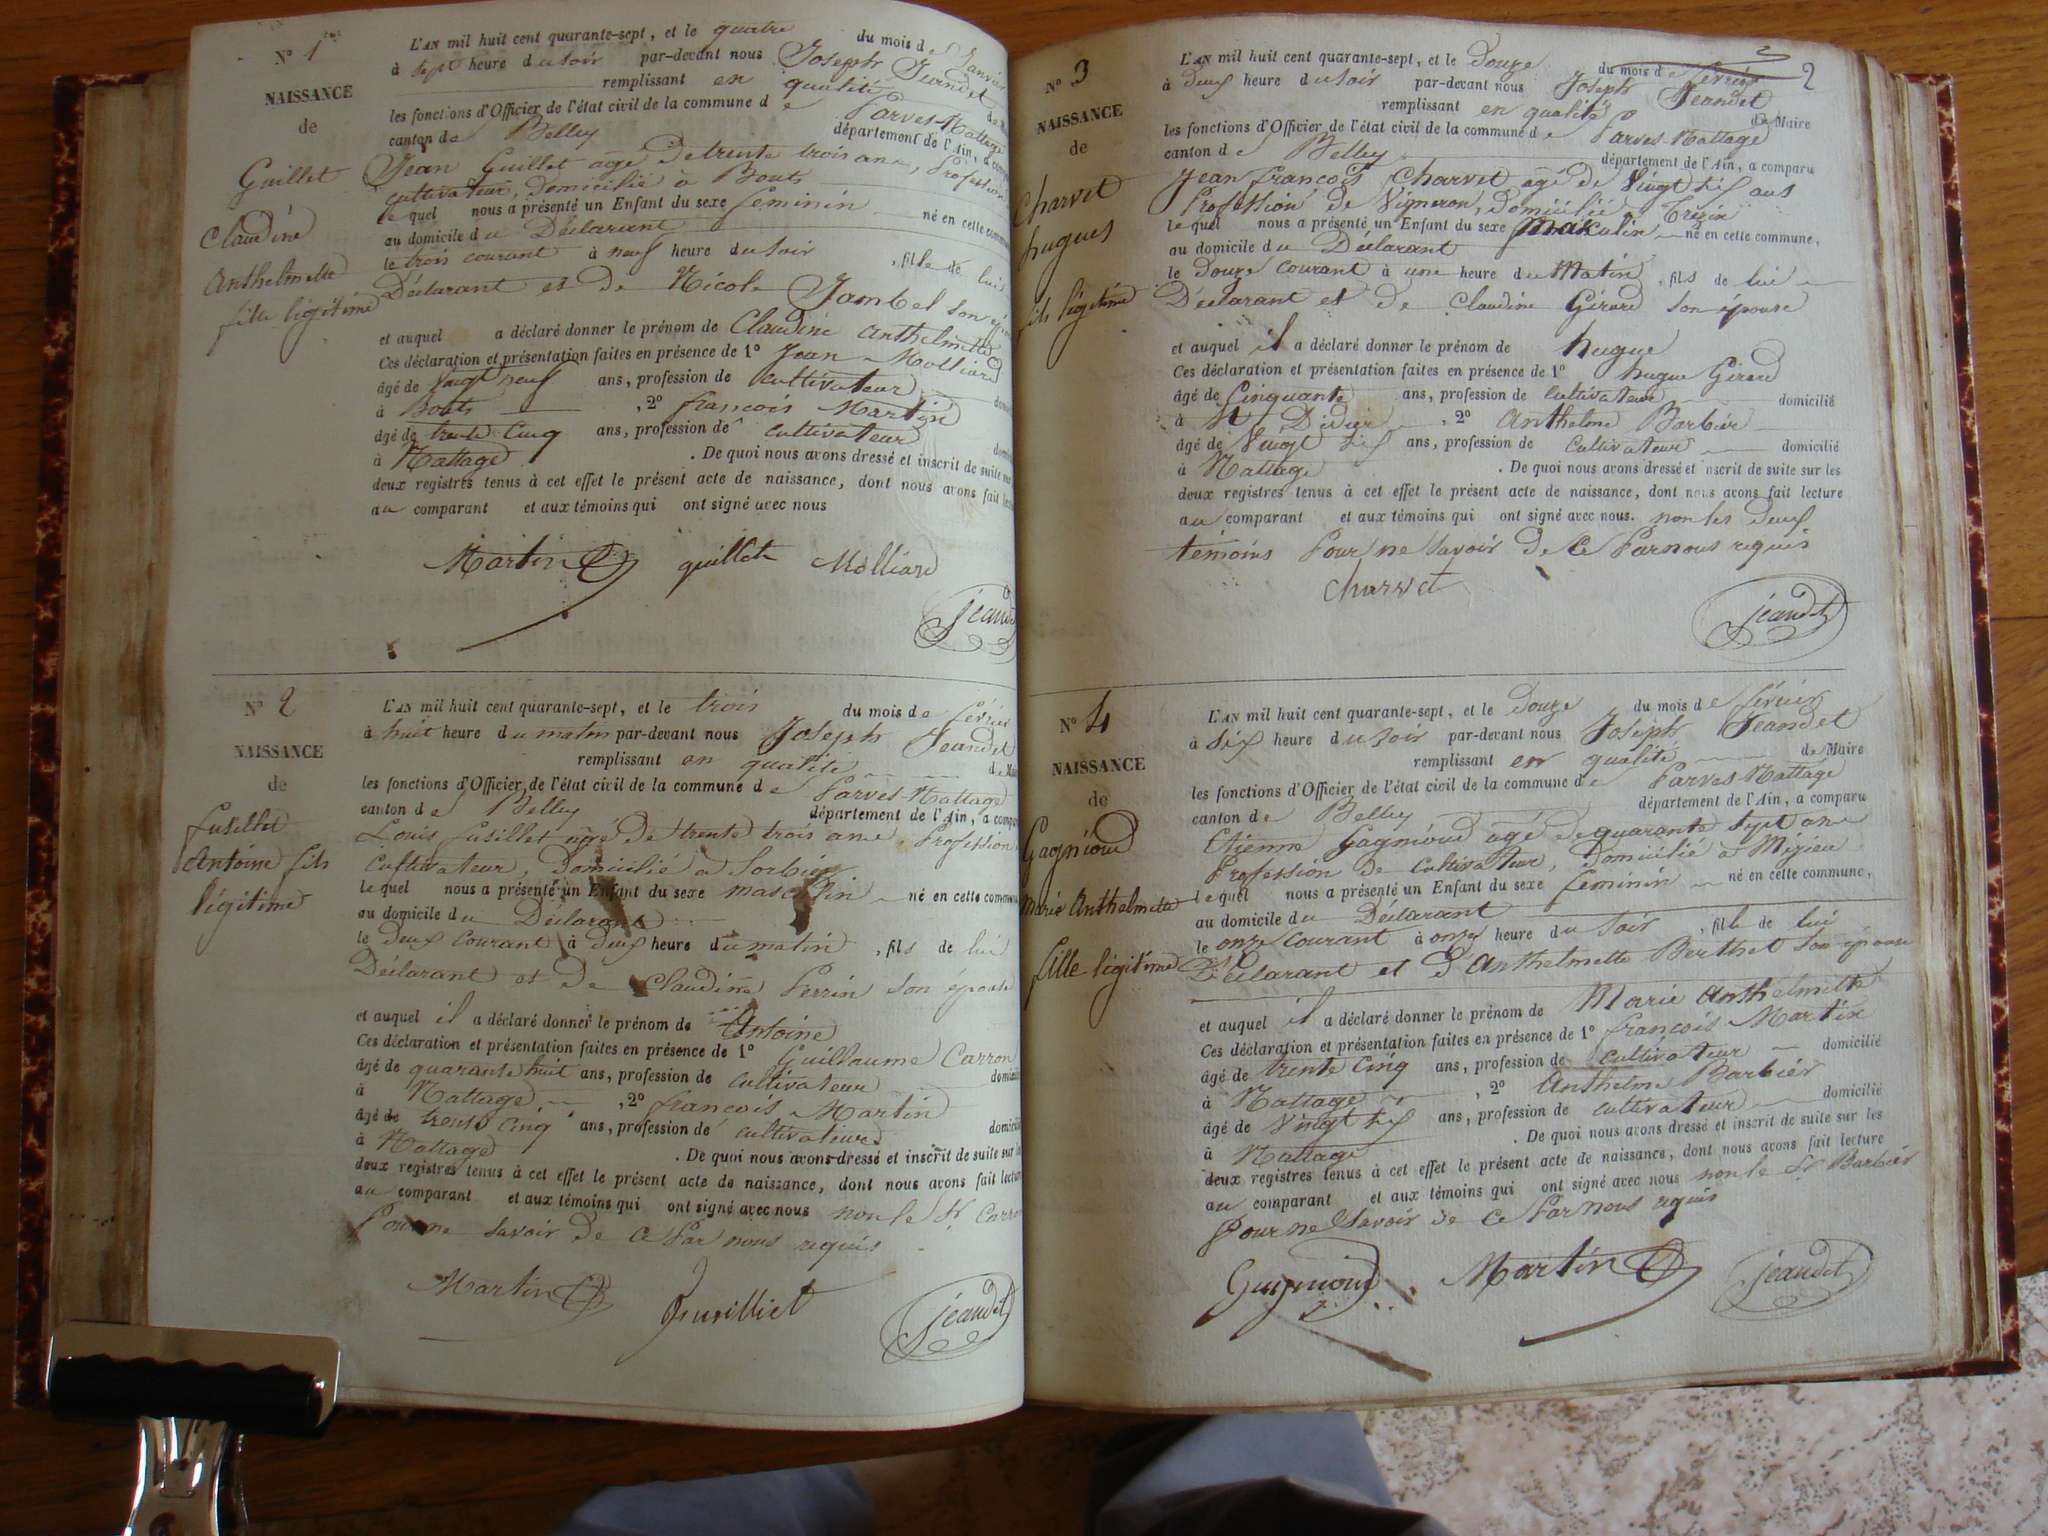 N° 1
NAISSANCE
de
Guillet
Claudine
Anthelmette
fille légitime
L'AN mil huit cent quarante-sept, et le quatre du mois de Janvier
à sept heure du soir par-devant nous Joseph Jeandet
remplissant en qualité de Maire
les fonctions d'Officier de l'état civil de la commune de Parves-Nattage
canton de Belley département de l'Ain, a comparu
Jean Guillet agé de trente trois ans, Profession
cultivateur, domicilié à Bouts
lequel nous a présenté un Enfant du sexe feminin né en cette commune
au domicile du Déclarant
le trois courant à neuf heure du soir, fille de lui
Déclarant et de Nicole Jambel son épouse
et auquel a déclaré donner le prénom de Claudine Anthelmette
Ces déclaration et présentation faites en présence de 1° Jean Molliard
âgé de vingt neuf ans, profession de cultivateur
à Bouts, 2° françois Martin
âgé de trente cinq ans, profession de cultivateur
à Nattage. De quoi nous avons dressé et inscrit de suite sur
deux registres tenus à cet effet le présent acte de naissance, dont nous avons fait lecture
au comparant et aux témoins qui ont signé avec nous
Martin guillet Molliard
jeandet
N° 2
NAISSANCE
de
fusillet
Antoine fils
légitime
L'AN mil huit cent quarante-sept, et le trois du mois de février
à huit heure du matin par-devant nous Joseph Jeandet
remplissant en qualité de Maire
les fonctions d'Officier de l'état civil de la commune de Parves-Nattage
canton de Belley département de l'Ain, a comparu
Louis fusillet agé de trente trois ans Profession
cultivateur, domicilié à Sorbier
lequel nous a présenté un Enfant du sexe masculin né en cette commune
au domicile du Déclarant
le deux courant à deux heure du matin, fils de lui
Déclarant et de Claudine Perrin son épouse
et auquel il a déclaré donner le prénom de Antoine
Ces déclaration et présentation faites en présence de 1° Guillaume Carron
âgé de quarante huit ans, profession de cultivateur domicilié
à Nattage, 2° françois Martin
âgé de trente cinq ans, profession de cultivateur domicilié
à Nattage. De quoi nous avons dressé et inscrit de suite sur les
deux registres tenus à cet effet le présent acte de naissance, dont nous avons fait lecture
au comparant et aux témoins qui ont signé avec nous non le Sr Carron
Pour ne savoir de ce Par nous requis
Martin fusilliet
jeandet
2
N° 3
NAISSANCE
de
Charvet
hugues
fils légitime
L'AN mil huit cent quarante-sept, et le Douze du mois de février
à deux heure du soir par-devant nous Joseph Jeandet
remplissant en qualité de Maire
les fonctions d'Officier de l'état civil de la commune de Parves Nattage
canton de Belley département de l'Ain, a comparu
Jean françois Charvet agé de Vingt six ans
Profession de Vigneron, domicilié à
lequel nous a présenté un Enfant du sexe Masculin né en cette commune,
au domicile du Déclarant
le Douze courant à une heure du Matin, fils de lui
Déclarant et de Claudine Girard son épouse
et auquel il a déclaré donner le prénom de hugue
Ces déclaration et présentation faites en présence de 1° hugue Girard
âgé de Cinquante ans, profession de Cultivateur domicilié
à St Didier, 2° Anthelme Barbier
âgé de Vingt six ans, profession de Cultivateur domicilié
à Nattage. De quoi nous avons dressé et inscrit de suite sur les
deux registres tenus à cet effet le présent acte de naissance, dont nous avons fait lecture
au comparant et aux témoins qui ont signé avec nous. non les deux
témoins Pour ne savoir de Ce Par nous requis
Charvet
jeandet
N° 4
NAISSANCE
de
Gagnioud
Marie Anthelmette
fille légitime
L'AN mil huit cent quarante-sept, et le Douze du mois de février
à Six heure du soir par-devant nous Joseph Jeandet
remplissant en qualité de Maire
les fonctions d'Officier de l'état civil de la commune de Parves Nattage
canton de Belley département de l'Ain, a comparu
Etienne Gagnioud agé de quarante sept ans
Profession de cultivateur, domicilié à Mizieu
lequel nous a présenté un Enfant du sexe feminin né en cette commune,
au domicile du Déclarant
le onze courant à onze heure du soir, fille de lui
Déclarant et d'Anthelmette Berthet son épouse
et auquel il a déclaré donner le prénom de Marie Anthelmette
Ces déclaration et présentation faites en présence de 1° françois Martin
âgé de trente cinq ans, profession de cultivateur domicilié
à Nattage, 2° Anthelme Barbier
âgé de Vingt six ans, profession de cultivateur domicilié
à Nattage. De quoi nous avons dressé et inscrit de suite sur les
deux registres tenus à cet effet le présent acte de naissance, dont nous avons fait lecture
au comparant et aux témoins qui ont signé avec nous non le Sr Barbier
Pour ne Savoir de Ce Par nous requis
Gagnioud Martin jeandet